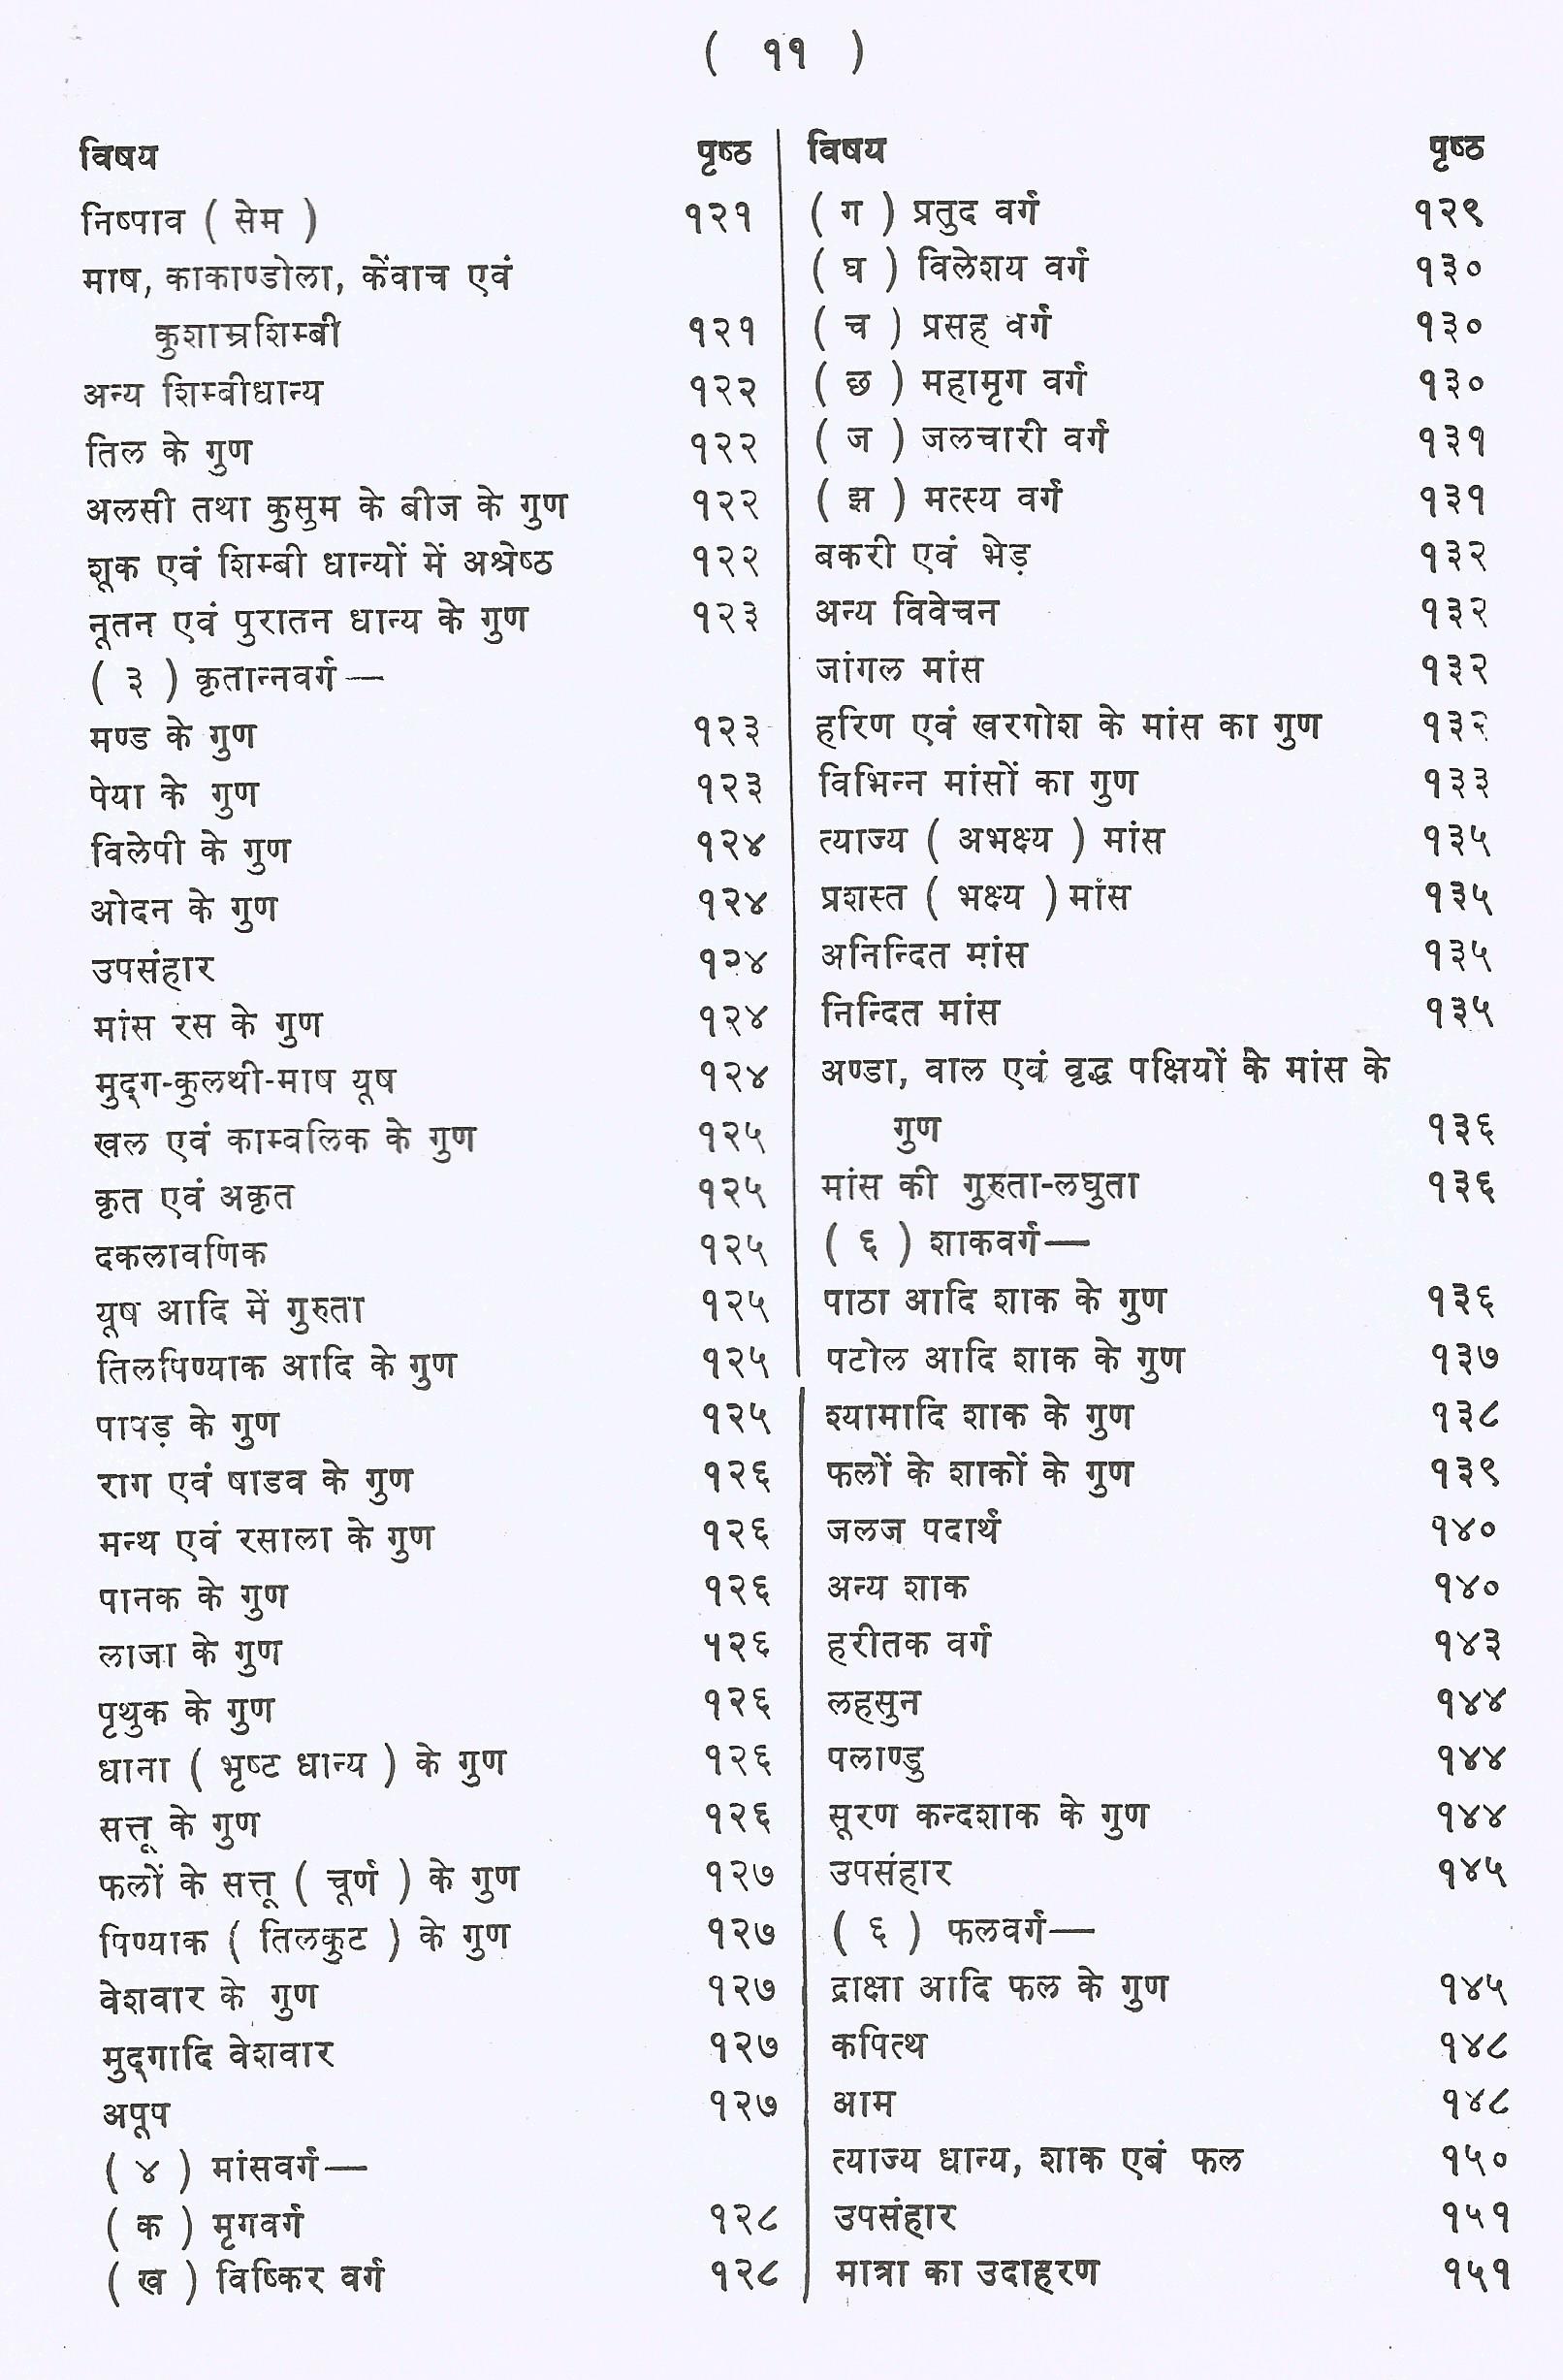 ( ११ )
विषय पृष्ठ
निष्पाव ( सेम ) १२१
माष, काकाण्डोला, केंवाच एवं
कुशाम्रशिम्बी १२१
अन्य शिम्बीधान्य १२२
तिल के गुण १२२
अलसी तथा कुसुम के बीज के गुण १२२
शूक एवं शिम्बी धान्यों में अश्रेष्ठ १२२
नूतन एवं पुरातन धान्य के गुण १२३
( ३ ) कृतान्नवर्ग—
मण्ड के गुण १२३
पेया के गुण १२३
विलेपी के गुण १२४
ओदन के गुण १२४
उपसंहार १२४
मांस रस के गुण १२४
मुद्ग-कुलथी-माष यूष १२४
खल एवं काम्वलिक के गुण १२५
कृत एवं अकृत १२५
दकलावणिक १२५
यूष आदि में गुरुता १२५
तिलपिण्याक आदि के गुण १२५
पापड़ के गुण १२५
राग एवं षाडव के गुण १२६
मन्थ एवं रसाला के गुण १२६
पानक के गुण १२६
लाजा के गुण १२६
पृथुक के गुण १२६
धाना ( भृष्ट धान्य ) के गुण १२६
सत्तू के गुण १२६
फलों के सत्तू ( चूर्ण ) के गुण १२७
पिण्याक ( तिलकुट ) के गुण १२७
वेशवार के गुण १२७
मुद्गादि वेशवार १२७
अपूप १२७
( ४ ) मांसवर्ग—
( क ) मृगवर्ग १२८
( ख ) विष्किर वर्ग १२८
विषय पृष्ठ
( ग ) प्रतुद वर्ग १२९
( घ ) विलेशय वर्ग १३०
( च ) प्रसह वर्ग १३०
( छ ) महामृग वर्ग १३०
( ज ) जलचारी वर्ग १३१
( झ ) मत्स्य वर्ग १३१
बकरी एवं भेड़ १३२
अन्य विवेचन १३२
जांगल मांस १३२
हरिण एवं खरगोश के मांस का गुण १३२
विभिन्न मांसों का गुण १३३
त्याज्य ( अभक्ष्य ) मांस १३५
प्रशस्त ( भक्ष्य ) मांस १३५
अनिन्दित मांस १३५
निन्दित मांस १३५
अण्डा, वाल एवं वृद्ध पक्षियों के मांस के
गुण १३६
मांस की गुरुता-लघुता १३६
( ६ ) शाकवर्ग—
पाठा आदि शाक के गुण १३६
पटोल आदि शाक के गुण १३७
श्यामादि शाक के गुण १३८
फलों के शाकों के गुण १३९
जलज पदार्थ १४०
अन्य शाक १४०
हरीतक वर्ग १४३
लहसुन १४४
पलाण्डु १४४
सूरण कन्दशाक के गुण १४४
उपसंहार १४५
( ६ ) फलवर्ग—
द्राक्षा आदि फल के गुण १४५
कपित्थ १४८
आम १४८
त्याज्य धान्य, शाक एबं फल १५०
उपसंहार १५१
मात्रा का उदाहरण १५१